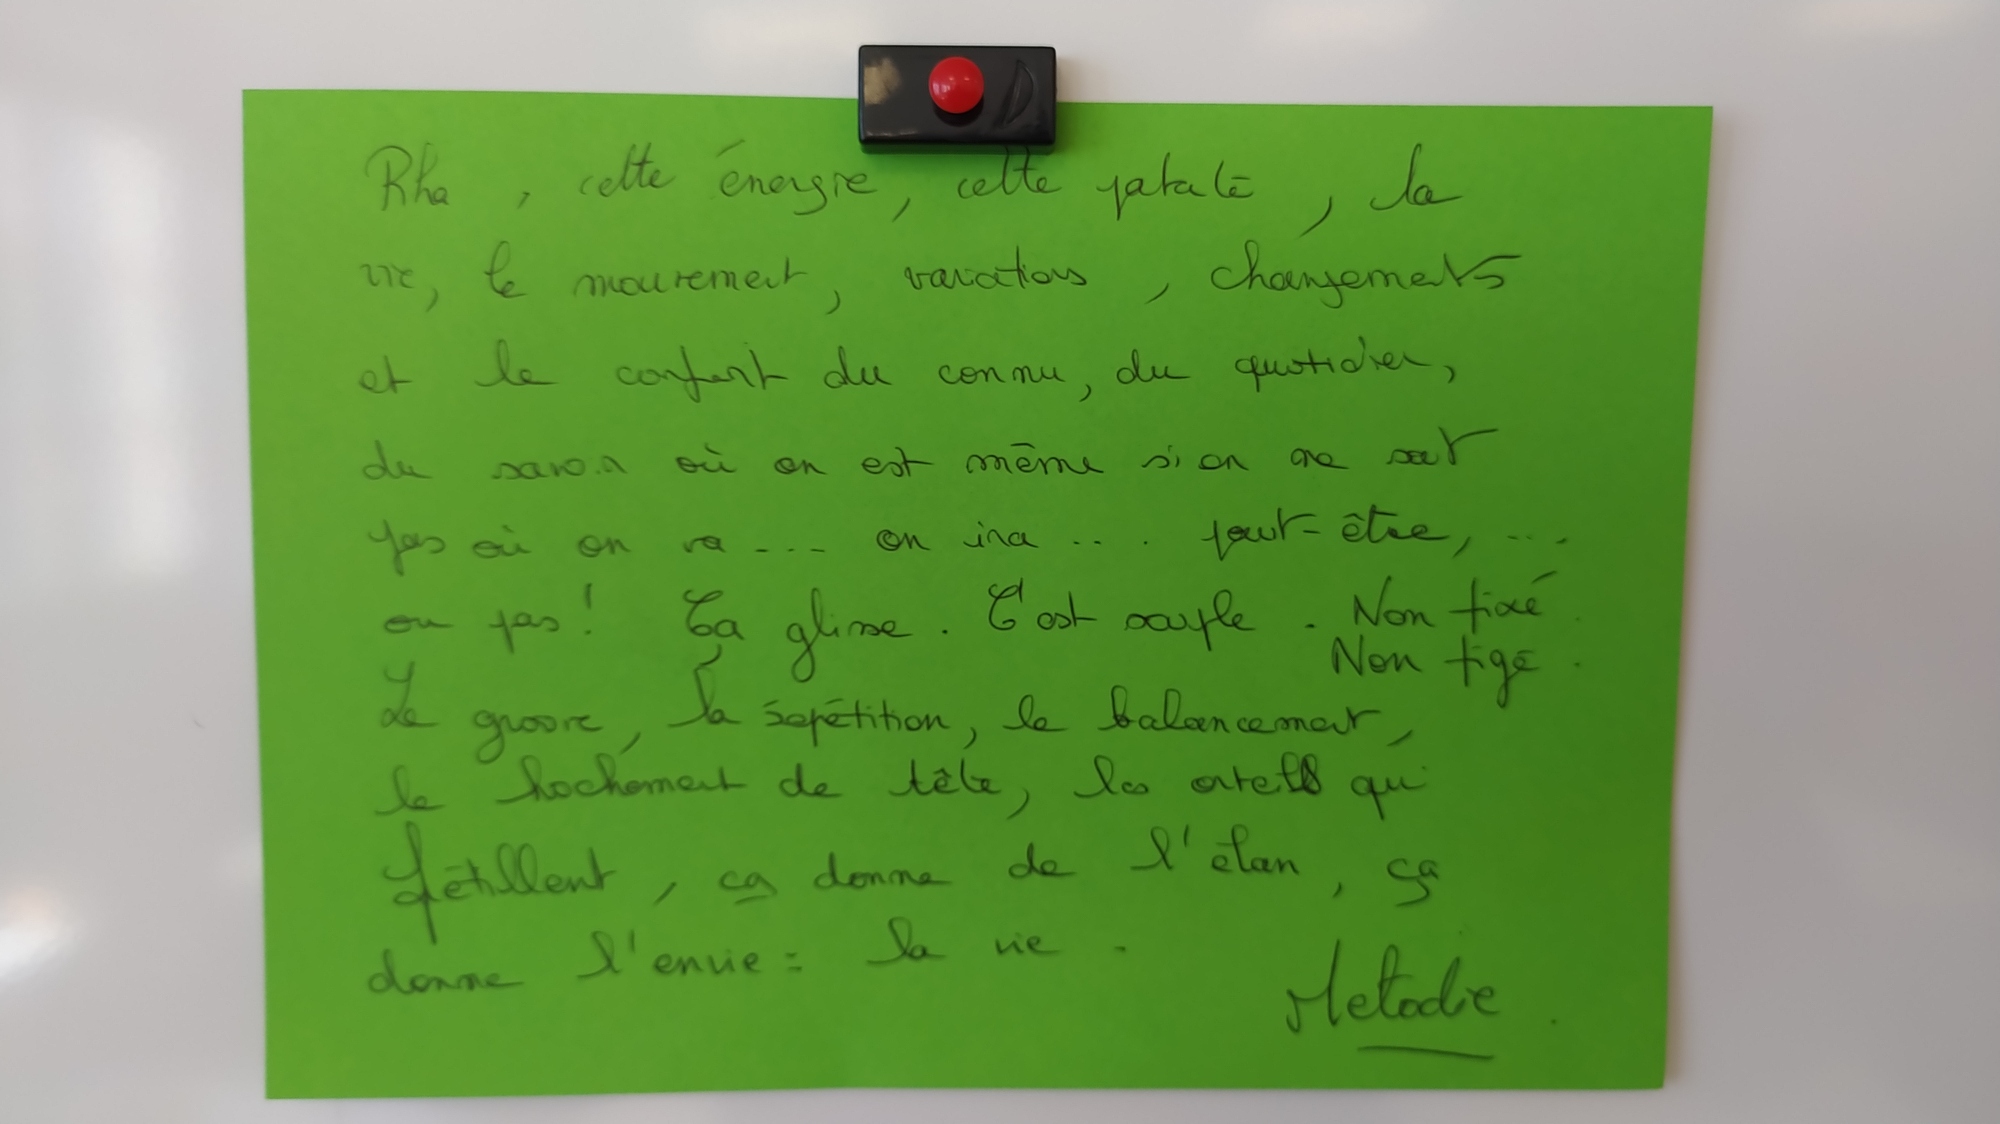 Rha, cette énergie, cette patate, la
vie, le mouvement, variations, changements
et le confort du connu, du quotidien,
du savoir où on est même si on ne sait
pas où on va .... on ira .... peut-être, ....
ou pas ! Ça glisse. C'est souple. Non fixé.
Non figé.
Le groove, la répétition, le balancement,
le hochement de tête, les orteils qui
fétillent, ça donne de l'élan, ça
donne l'envie : la vie.
Melodie.